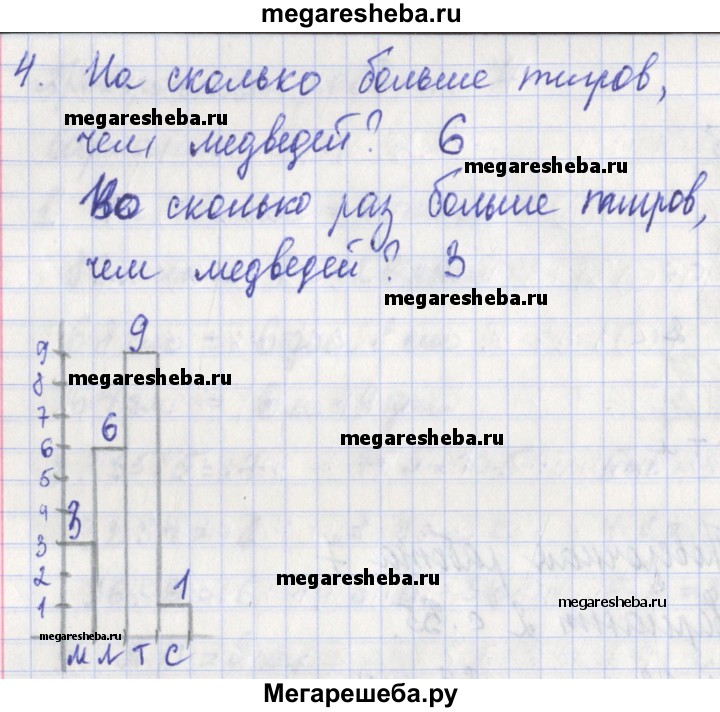 megaresheba.ru
4. На сколько больше тигров,
megaresheba.ru
чем медведей? 6
megaresheba.ru
Во сколько раз больше тигров,
чем медведей? 3
megaresheba.ru
9
9
megaresheba.ru
8
7
6
6
megaresheba.ru
5
4
3
3
2
megaresheba.ru
1
1
megaresheba.ru
megaresheba.ru
М Л Т С
Мегарешеба.ру